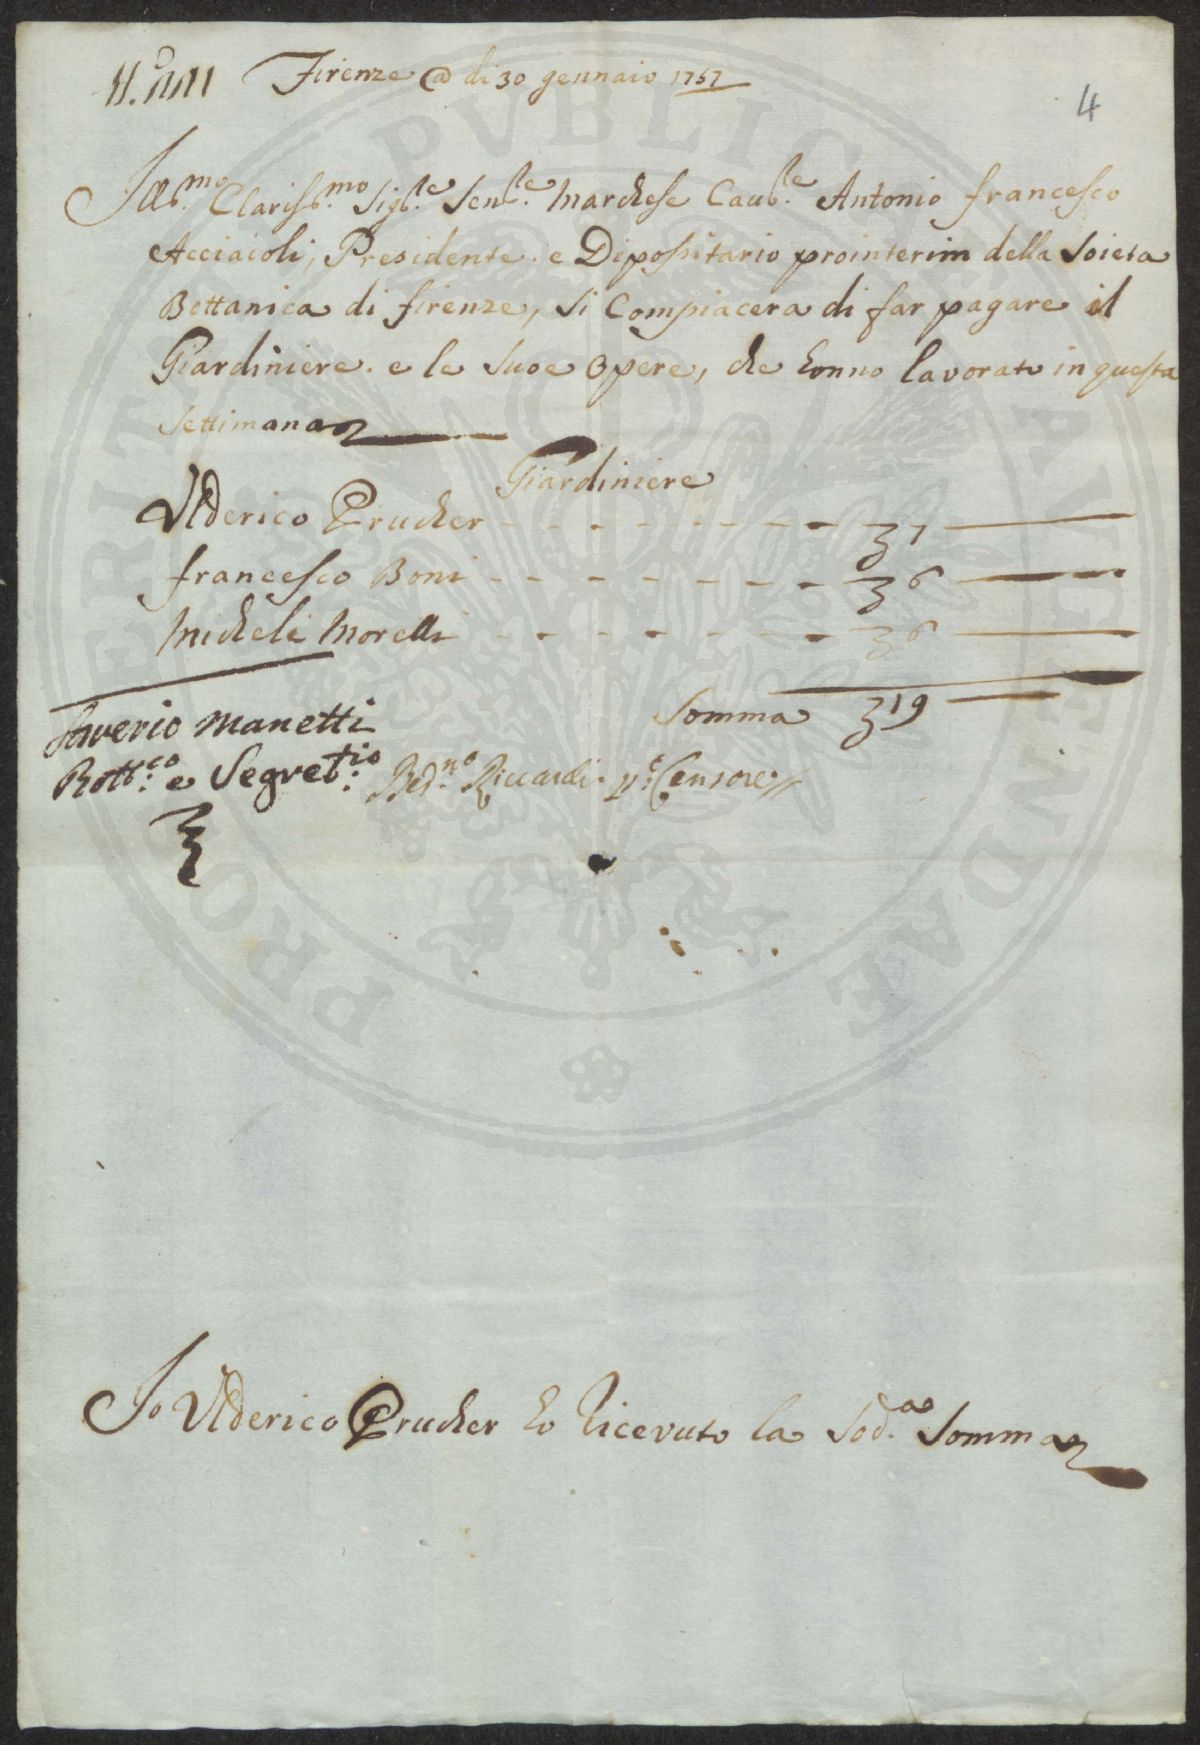 N.° IIII Firenze @ di 30 gennaio 1767
4
Ill.mo Clariss.mo Sig.re Sen.re Marchese Cau.re Antonio francesco
Acciaioli, Presidente e Dipositario prointerim della Soieta
Bottanica di firenze, si Compiacera di far pagare il
Giardiniere e le Suoe Opere, che honno lavorato in questa
Settimana
Giardiniere
Ulderico Prucher - - - - - - - 37
francesco Boni - - - - - - - 36
Michele Morelli - - - - - - - 36
Somma 319
Saverio Manetti
Bott.co e Segret.io Bed.no Riccardi p.e Censore
Io Ulderico Prucher ho Ricevuto la Sod.a Somma
PROSPERITATI PVBLICAE AVGENDAE